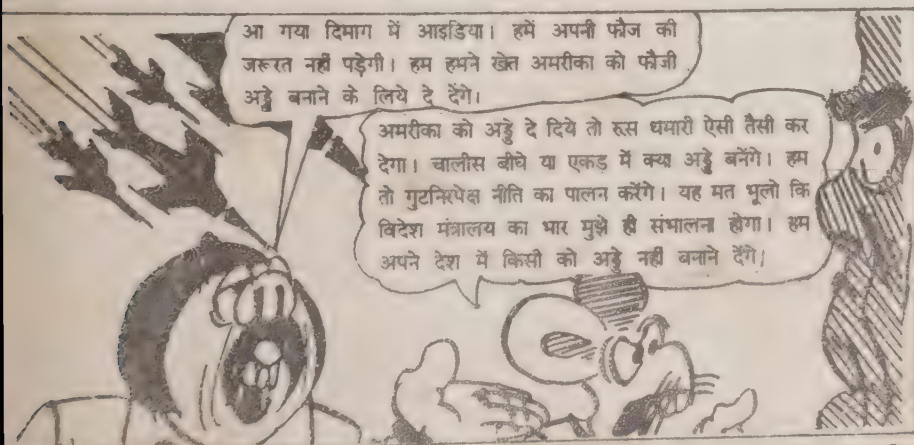 आ गया दिमाग में आइडिया। हमें अपनी फौज की
जरूरत नहीं पड़ेगी। हम हमने खेत अमरीका को फौजी
अड्डे बनाने के लिये दे देंगे।
अमरीका को अड्डे दे दिये तो रुस थमारी ऐसी तैसी कर
देगा। चालीस बीघे या एकड़ में क्या अड्डे बनेंगे। हम
तो गुटनिरपेक्ष नीति का पालन करेंगे। यह मत भूलो कि
विदेश मंत्रालय का भार मुझे ही संभालना होगा। हम
अपने देश में किसी को अड्डे नहीं बनाने देंगे।